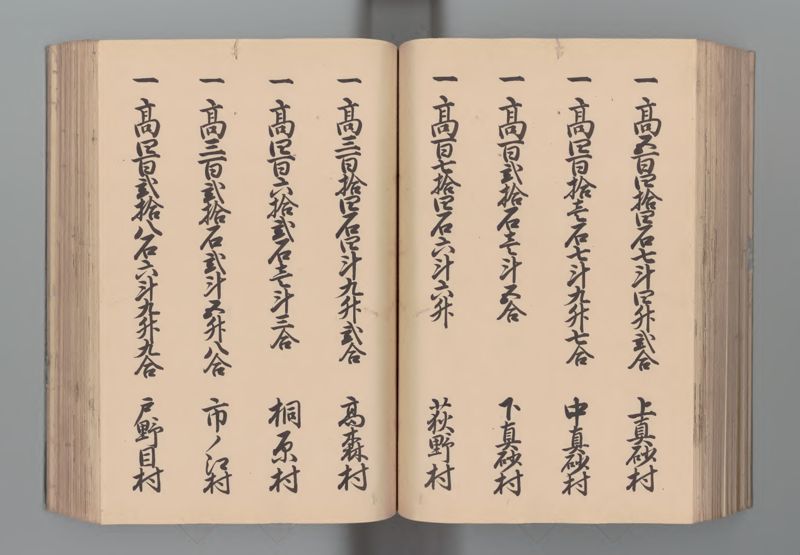 一 高五百四拾四石七斗四升弐合 上真砂村
一 高四百拾壱石七斗九升七合 中真砂村
一 高百弐拾石壱斗五合 下真砂村
一 高百七拾四石六斗六升 荻野村
一 高三百拾四石四斗九升弐合 高森村
一 高四百六拾弐石壱斗三合 桐原村
一 高三百弐拾石弐斗五升八合 市ノ江村
一 高四百弐拾八石六斗九升九合 戸野目村